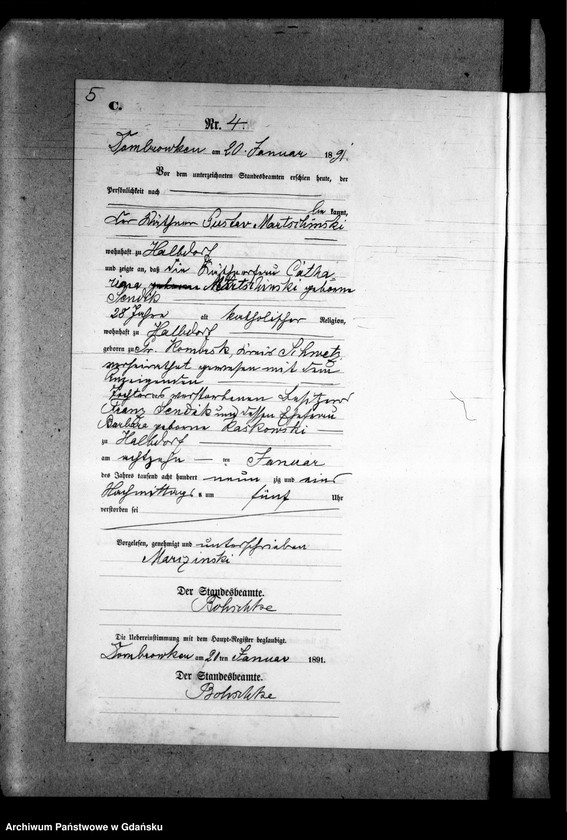 5
C.
Nr. 4.
Dombrowken am 20. Januar 1891.
Vor dem unterzeichneten Standesbeamten erschien heute, der
Persönlichkeit nach
kannt,
der Käthner Gustav Martschinski
wohnhaft zu Halbdorf
und zeigte an, daß die Käthnerfrau Catha
rina geborne Martschinski geborne
Sendik
28 Jahre alt katholischer Religion,
wohnhaft zu Halbdorf
geboren zu Gr. Komorsk, Kreis Schwetz
verheirathet gewesen mit dem
Anzeigenden
Tochter des verstorbenen Besitzers
Franz Sendik und dessen Ehefrau
Barbara geborne Raskowski
zu Halbdorf
am achtzehn ten Januar
des Jahres tausend acht hundert neun zig und eins
Nachmittags um fünf Uhr
verstorben sei
Vorgelesen, genehmigt und unterschrieben
Der Standesbeamte.
Bohschke
Die Uebereinstimmung mit dem Haupt-Register beglaubigt.
Dombrowken am 20 ten Januar 1891.
Der Standesbeamte.
Bohschke
Archiwum Państwowe w Gdańsku